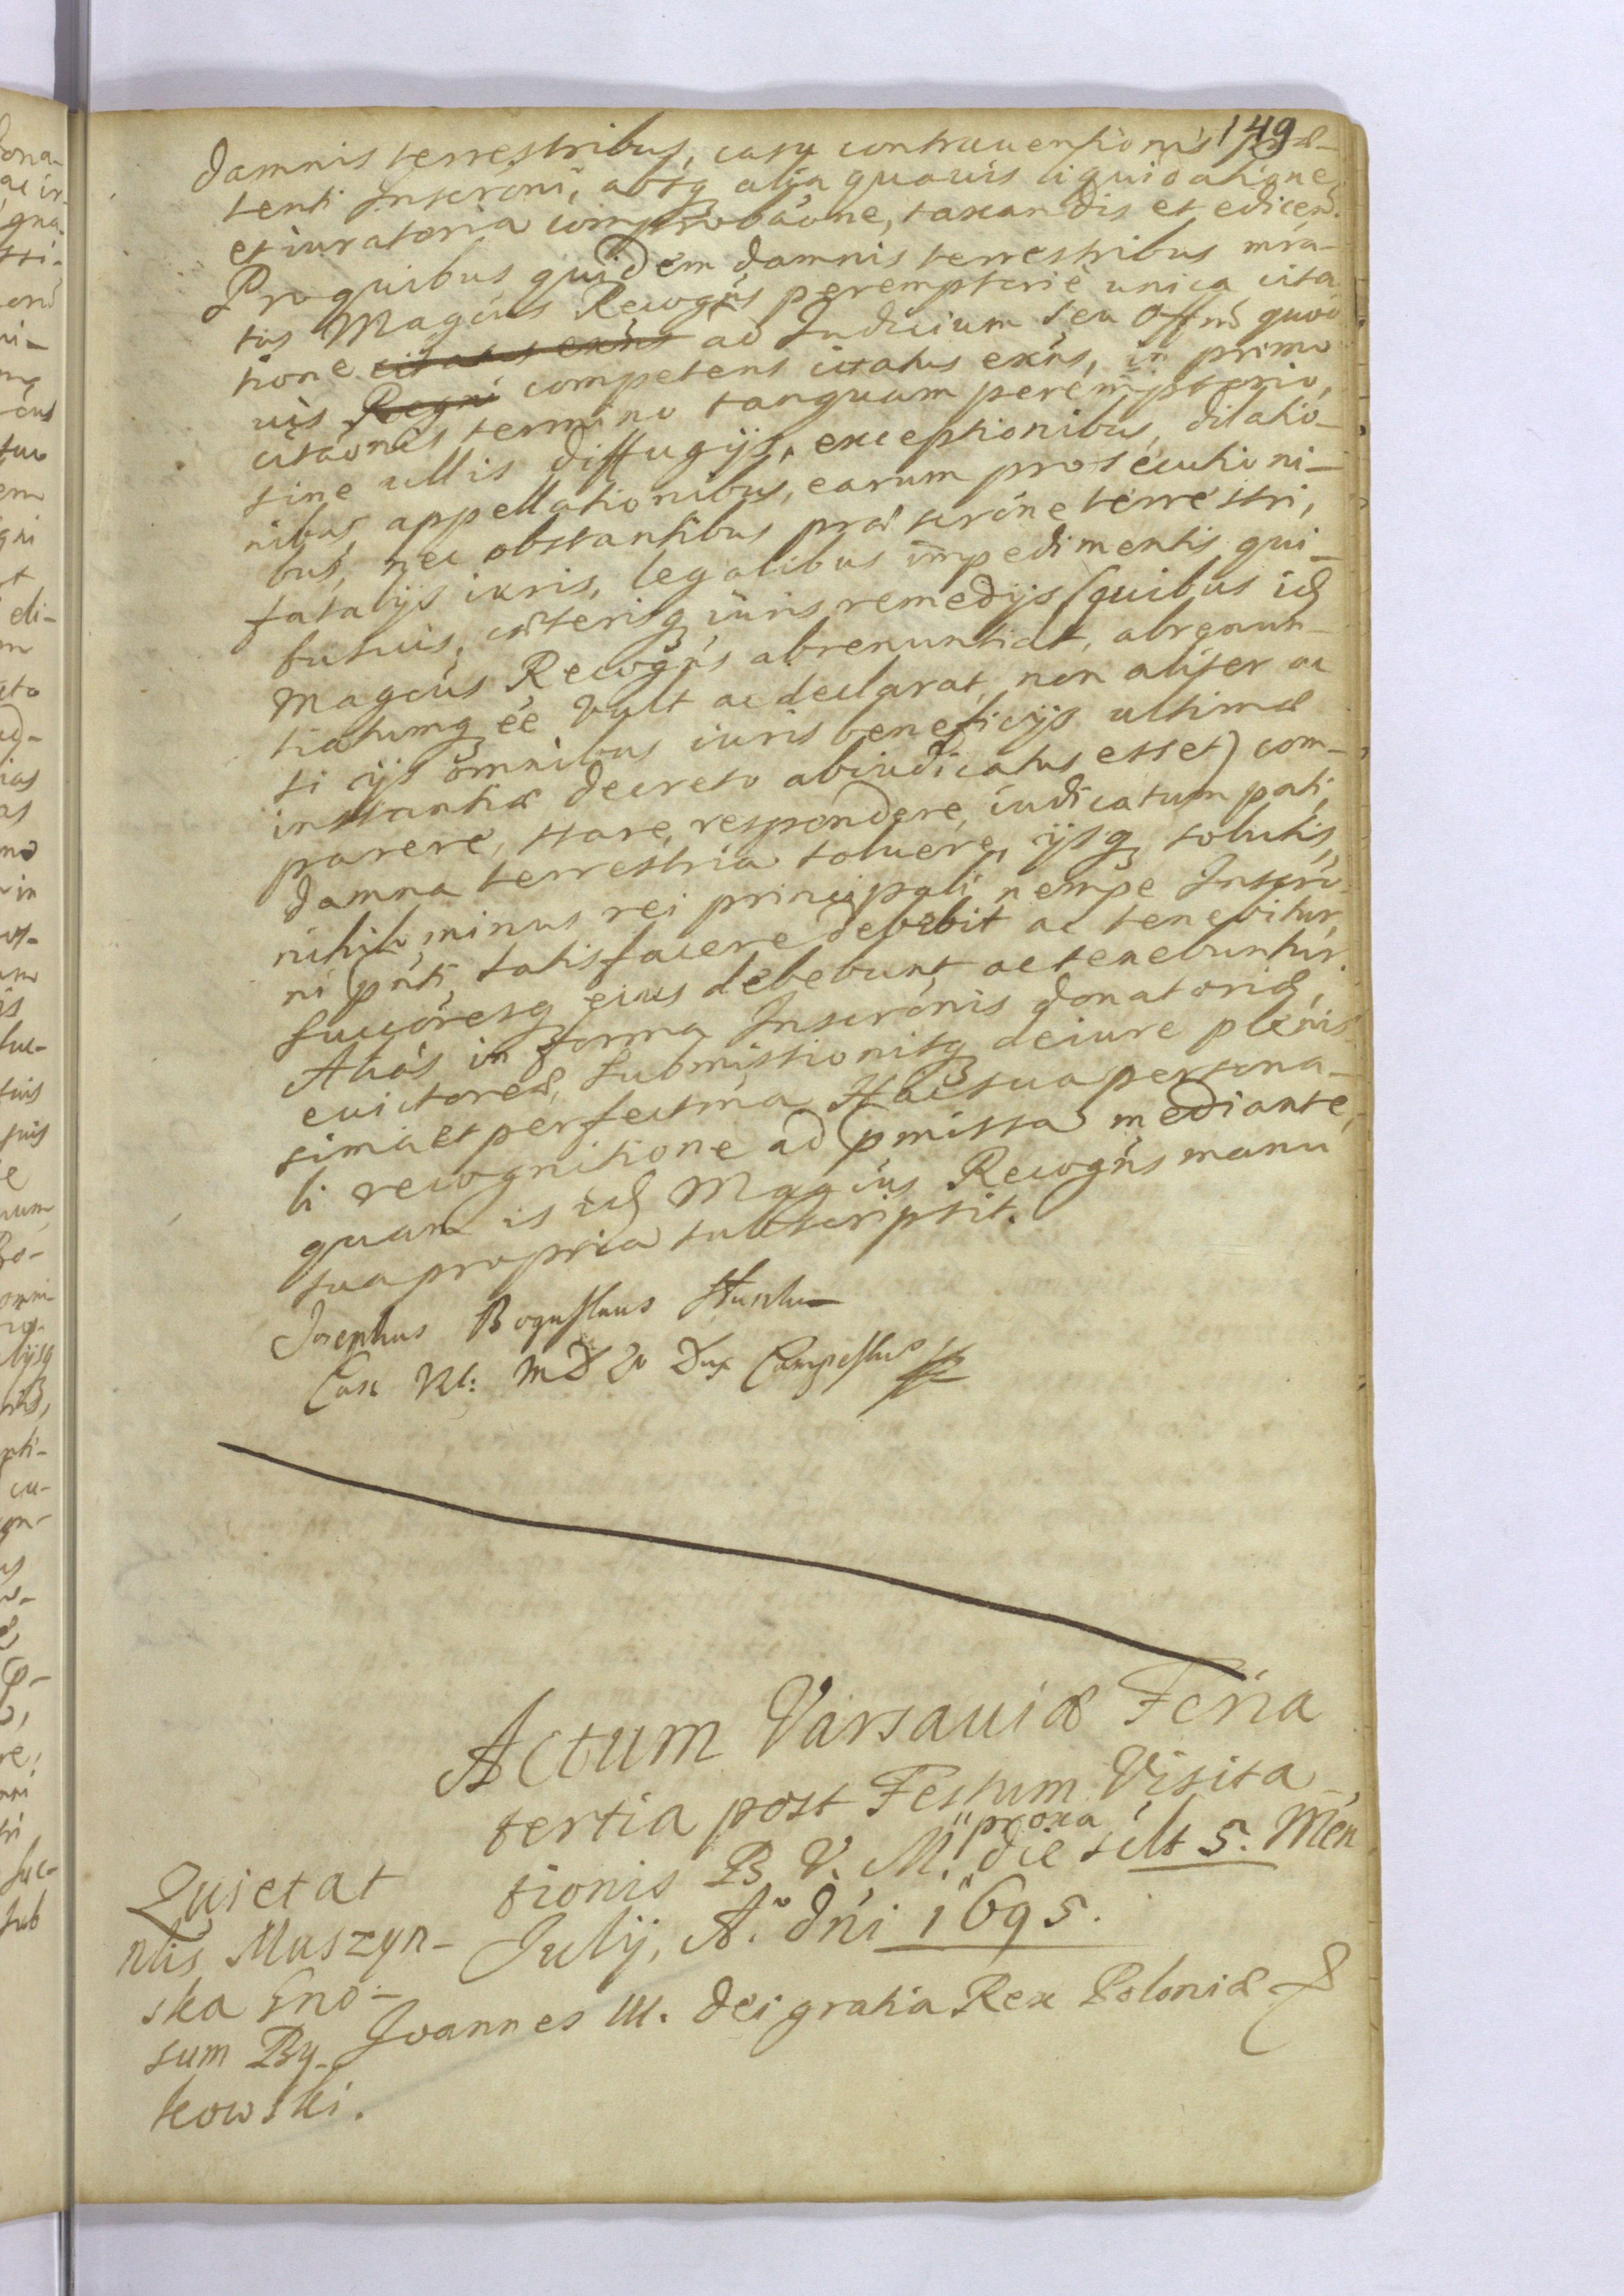 149
damnis terrestribus, casu contrauentionis præ-
senti Inscrōni, absq alia quauis liquidatione
et iuratoria comprobāōne, taxandis et edicend.
Pro quibus quidem damnis terrestribus mra-
tus Magcus Recogns peremptorie unica cita
tione citatus exns ad Iudicium seu Offm quod
uis Regni competens citatus exns, in primo
citāōnis termino tanquam peremptorio,
sine ullis diffugijs, exceptionibus, dilatio-
nibus, appellationibus, earum prosecutioni-
bus, nec obstantibus præscrōne terrestri,
fatalijs iuris, legalibus impedimentis qui-
busuis, cæterisq iuris remedijs (quibus id
Magcus Recogns abrenuntiat, abrenun-
tiatumq ee vult ac declarat, non aliter ac
si ijs omnibus iuris beneficijs ultimæ
instantiæ decreto abiudicatus esset) com-
parere, stare, respondere, iudicatum pati,
damna terrestria soluere, ijsq solutis,
nihilominus rei principali nempe Inscrō-
ni pnti, satisfacere debebit ac tenebitur,
succoresq eius debebunt ac tenebuntur.
Aliàs in forma Inscrōnis donatoriæ,
euictoreæ, submissionisq de iure plenis-
sima et perfectma Hac sua persona-
li recognitione ad pmissa mediante,
quam is id Magcus Recogns manu
sua propria subscripsit.
Josephus Boguslaus
Cast Vil: M D L Dux Campestris
Actum Varsauiæ Feria
tertia post Festum Visita-
tionis B. V. M. proxa die scilt 5. Men
July, A.° dni 1695.
Quietat
nlis Muszyn-
ska Gno-
sum By-
kowski.
Joannes III. Dei gratia Rex Poloniæ